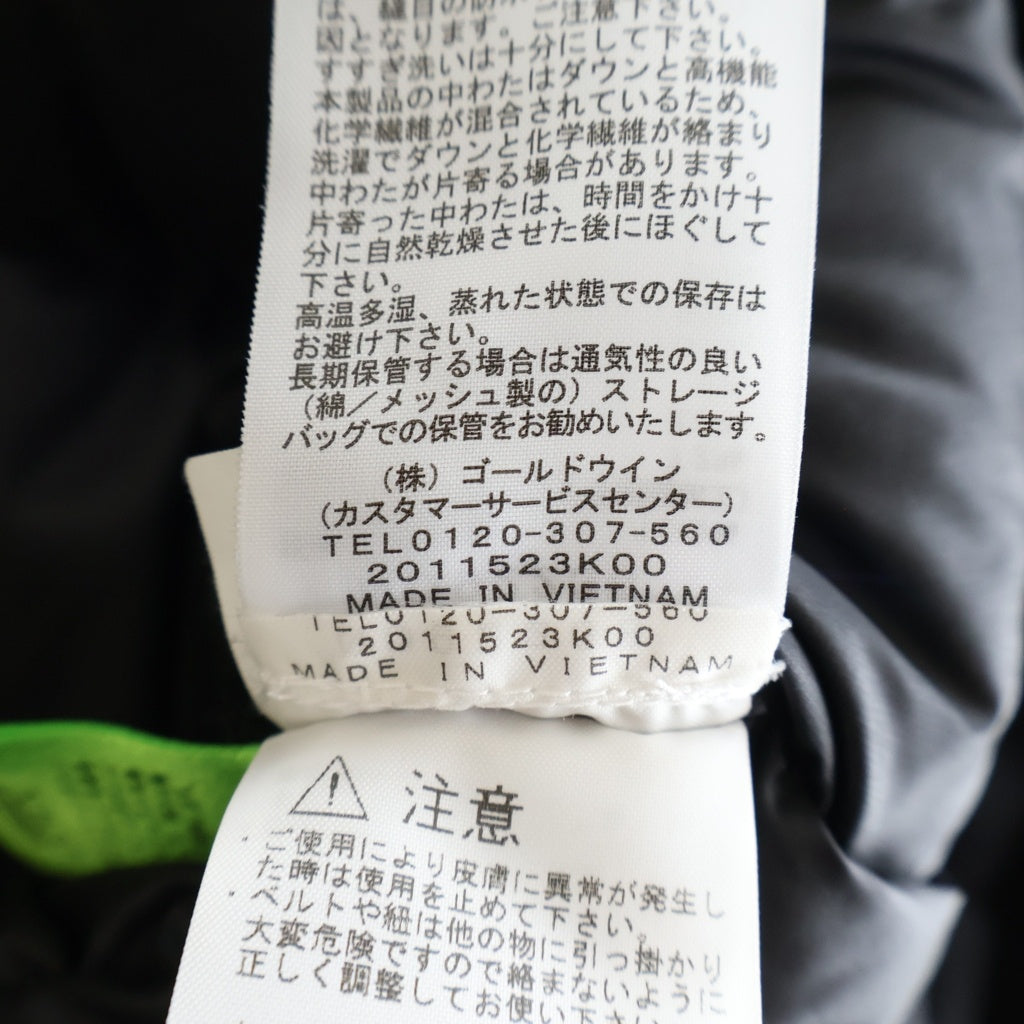 は、縫目の防水
ご注意下さい。
因となります。
すすぎ洗いは十分にして下さい。
本製品の中わたはダウンと高機能
化学繊維が混合されているため、
洗濯でダウンと化学繊維が絡まり
中わたが片寄る場合があります。
片寄った中わたは、時間をかけ十
分に自然乾燥させた後にほぐして
下さい。
高温多湿、蒸れた状態での保存は
お避け下さい。
長期保管する場合は通気性の良い
(綿/メッシュ製の)ストレージ
バッグでの保管をお勧めいたします。
(株)ゴールドウイン
(カスタマーサービスセンター)
TEL0120-307-560
2011523K00
MADE IN VIETNAM
TEL0120-307-560
2011523K00
MADE IN VIETNAM
注意
・ご使用により皮膚に異常が発生し
た時は使用を止めて下さい。
・ベルトや紐は他の物に引っ掛かり
大変危険ですので絡まないように
正しく調整してお使い下さい